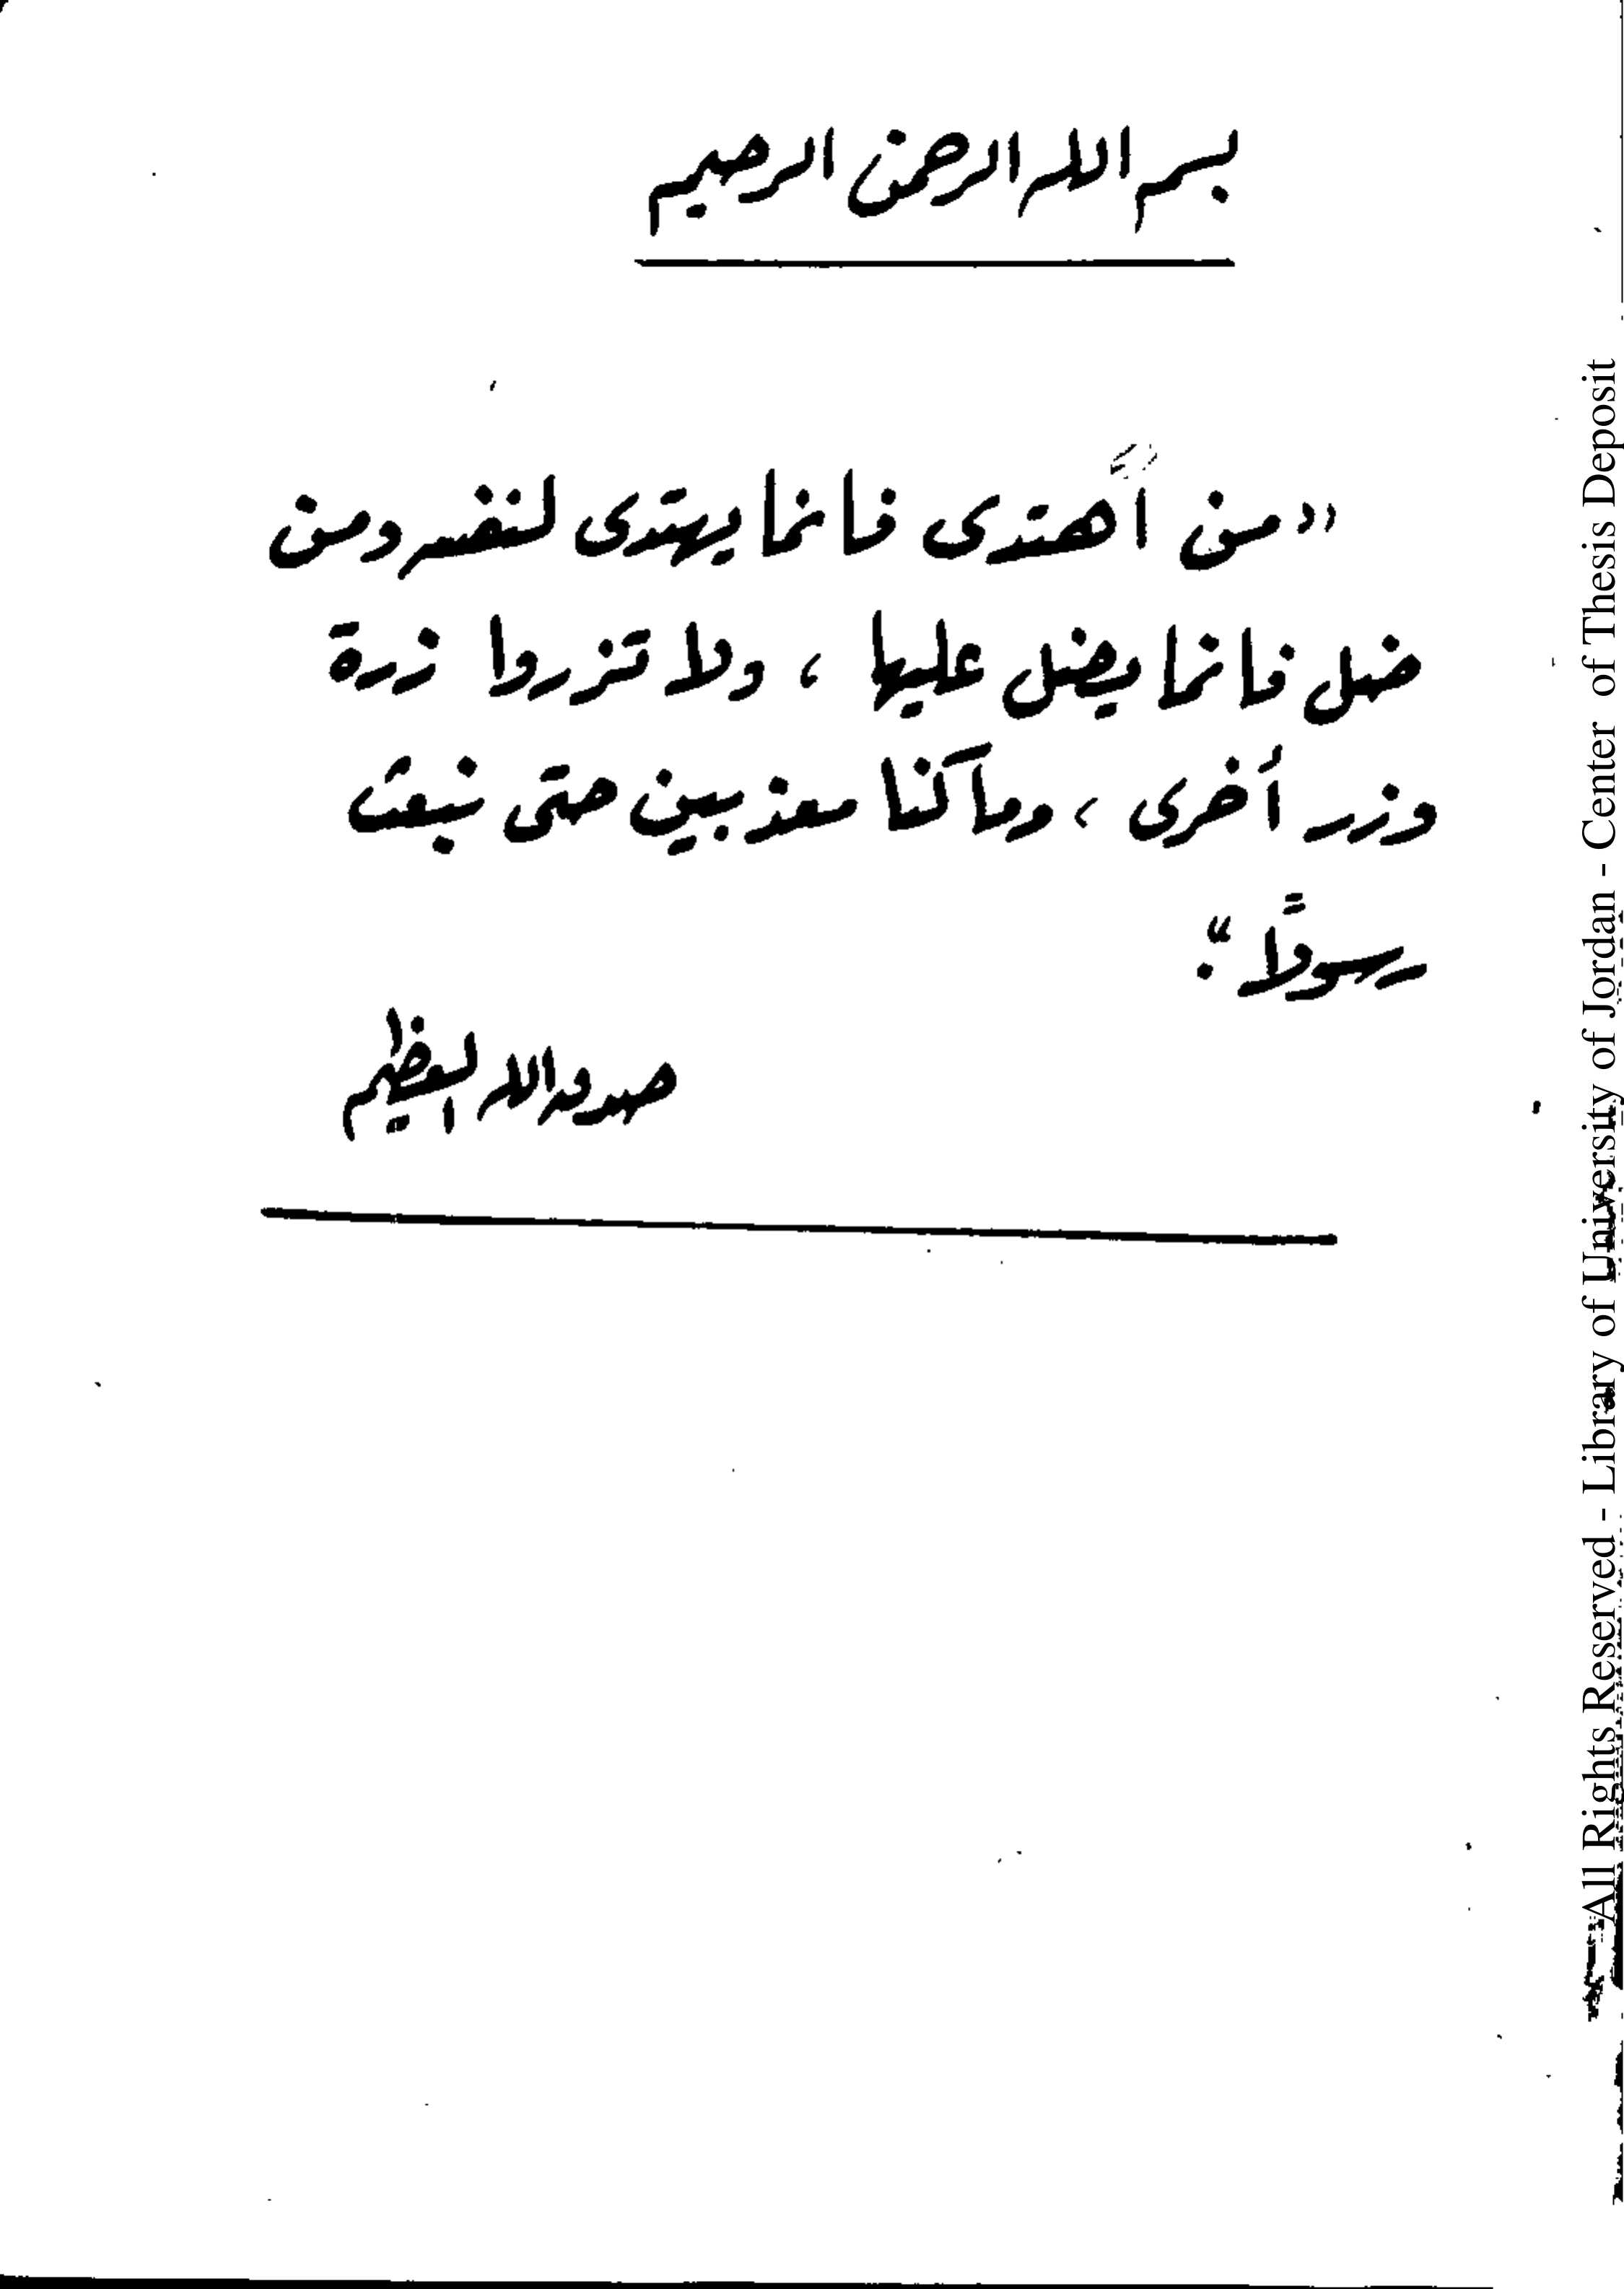 بسم الله الرحمن الرحيم
"من أهتدى فانما يهتدى لنفسه ومن
ضل فانما يضل عليها ، ولا تزروا زرة
وزر أخرى ، وما كنا معذبين حتى نبعث
رسولاً".
صدق الله العظيم
All Rights Reserved - Library of University of Jordan - Center of Thesis Deposit